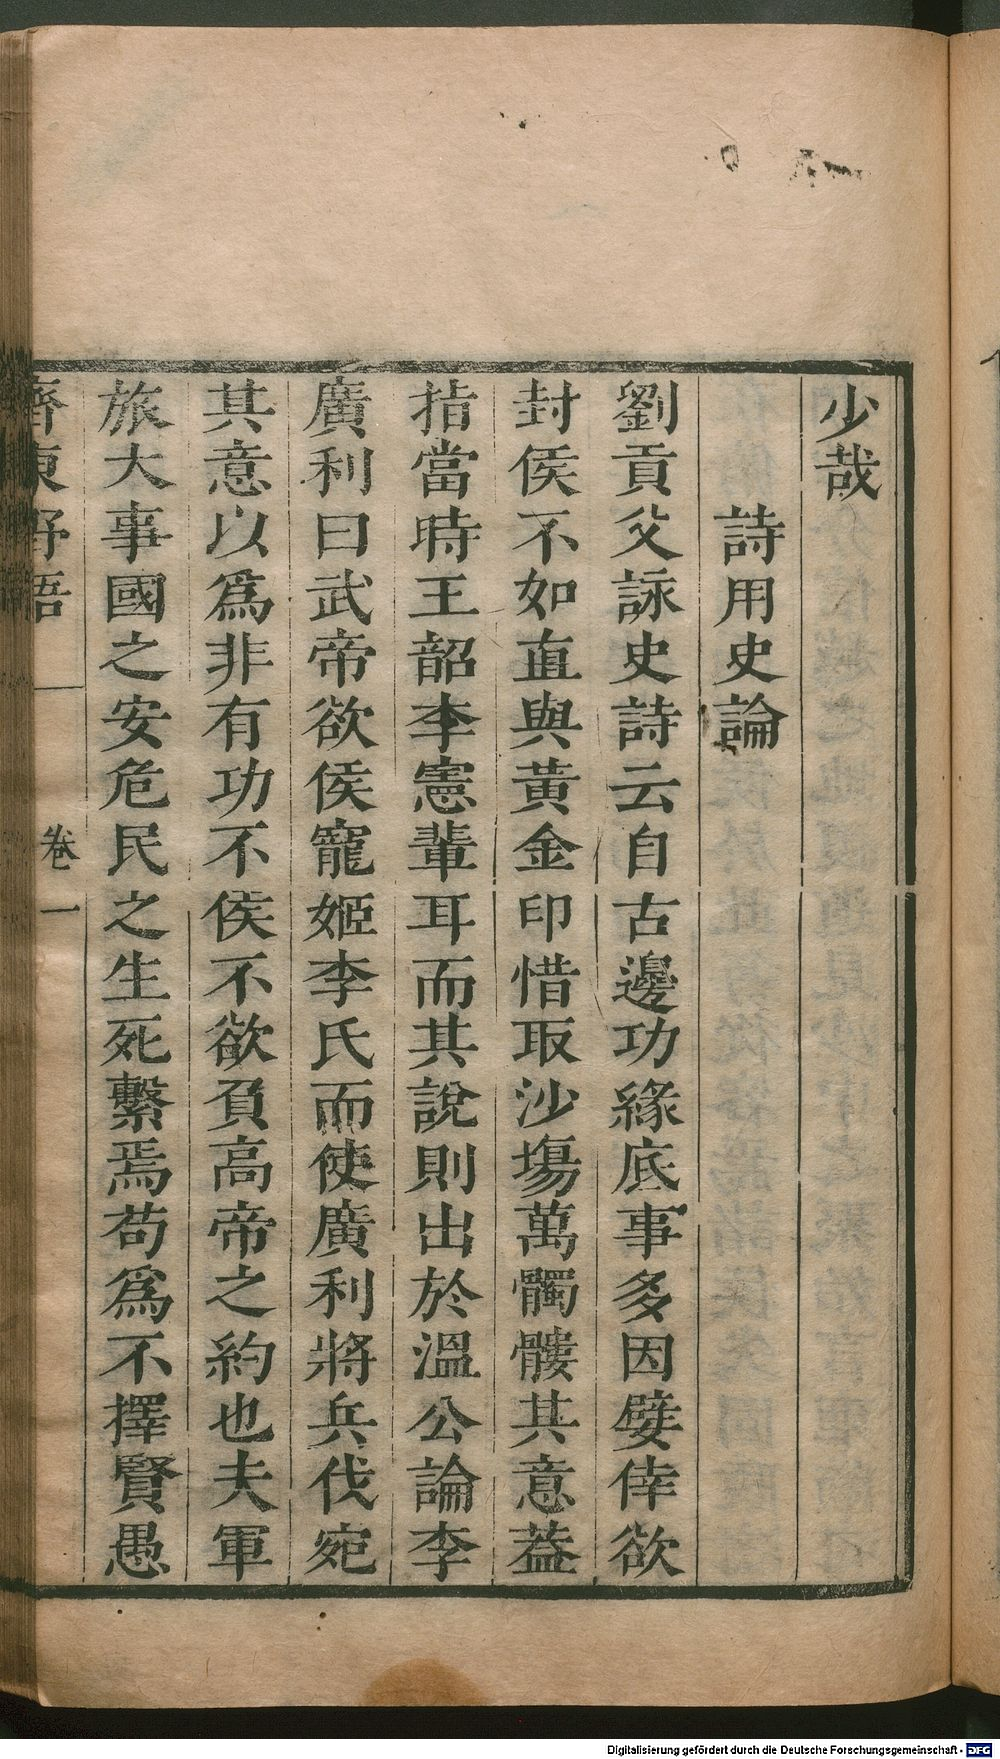 少哉
詩用史論
劉貢父詠史詩云自古邊功緣底事多因嬖倖欲
封侯不如直與黃金印惜取沙塲萬髑髏其意葢
指當時王韶李憲輩耳而其說則出於溫公論李
廣利曰武帝欲侯寵姬李氏而使廣利將兵伐宛
其意以爲非有功不侯不欲負高帝之約也夫軍
旅大事國之安危民之生死繫焉苟爲不擇賢愚
齊東野語 卷一
Digitalisierung gefördert durch die Deutsche Forschungsgemeinschaft - DFG